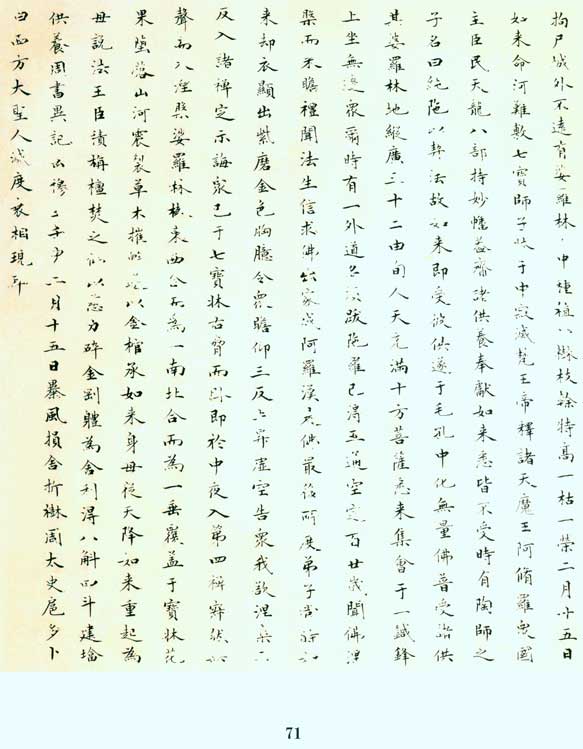 拘尸城外不遠有娑羅林中種植八株枝榦特高一枯一榮二月十五日
如來命阿難敷七寶師子牀于中寂滅梵王帝釋諸天魔王阿脩羅眾國
主臣民天龍八部持妙幢葢齋諸供養奉獻如來悉皆不受時有陶師之
子名曰純陀以契法故如來即受彼供遂于毛孔中化無量佛普受諸供
其娑羅林地縱廣三十二由旬人天充滿十方菩薩悉來集會于一鍼鋒
上坐無邊眾爾時有一外道名須跋陀羅已得五通空定百廿歲聞佛涅
槃而來瞻禮聞法生信求佛出家成阿羅漢是佛最後所度弟子
來却衣顯出紫磨金色胸臆令眾瞻仰三反上昇虛空告眾我該涅槃
反入諸禪定示誨眾已于七寶牀右脅而臥即於中夜入第四禪寂然
聲而入涅槃娑羅林樹東西合而為一南北合而為一垂覆葢于寶牀花
果墮落山河震裂草木摧以金棺承如來身母從天降如來重起為
母說法王臣積栴檀焚之以悲力碎金剛體為舍利得八斛四斗建塔
供養周書異記五十二年二月十五日暴風損舍折樹周太史扈多卜
曰西方大聖人滅度衰相現耶
71